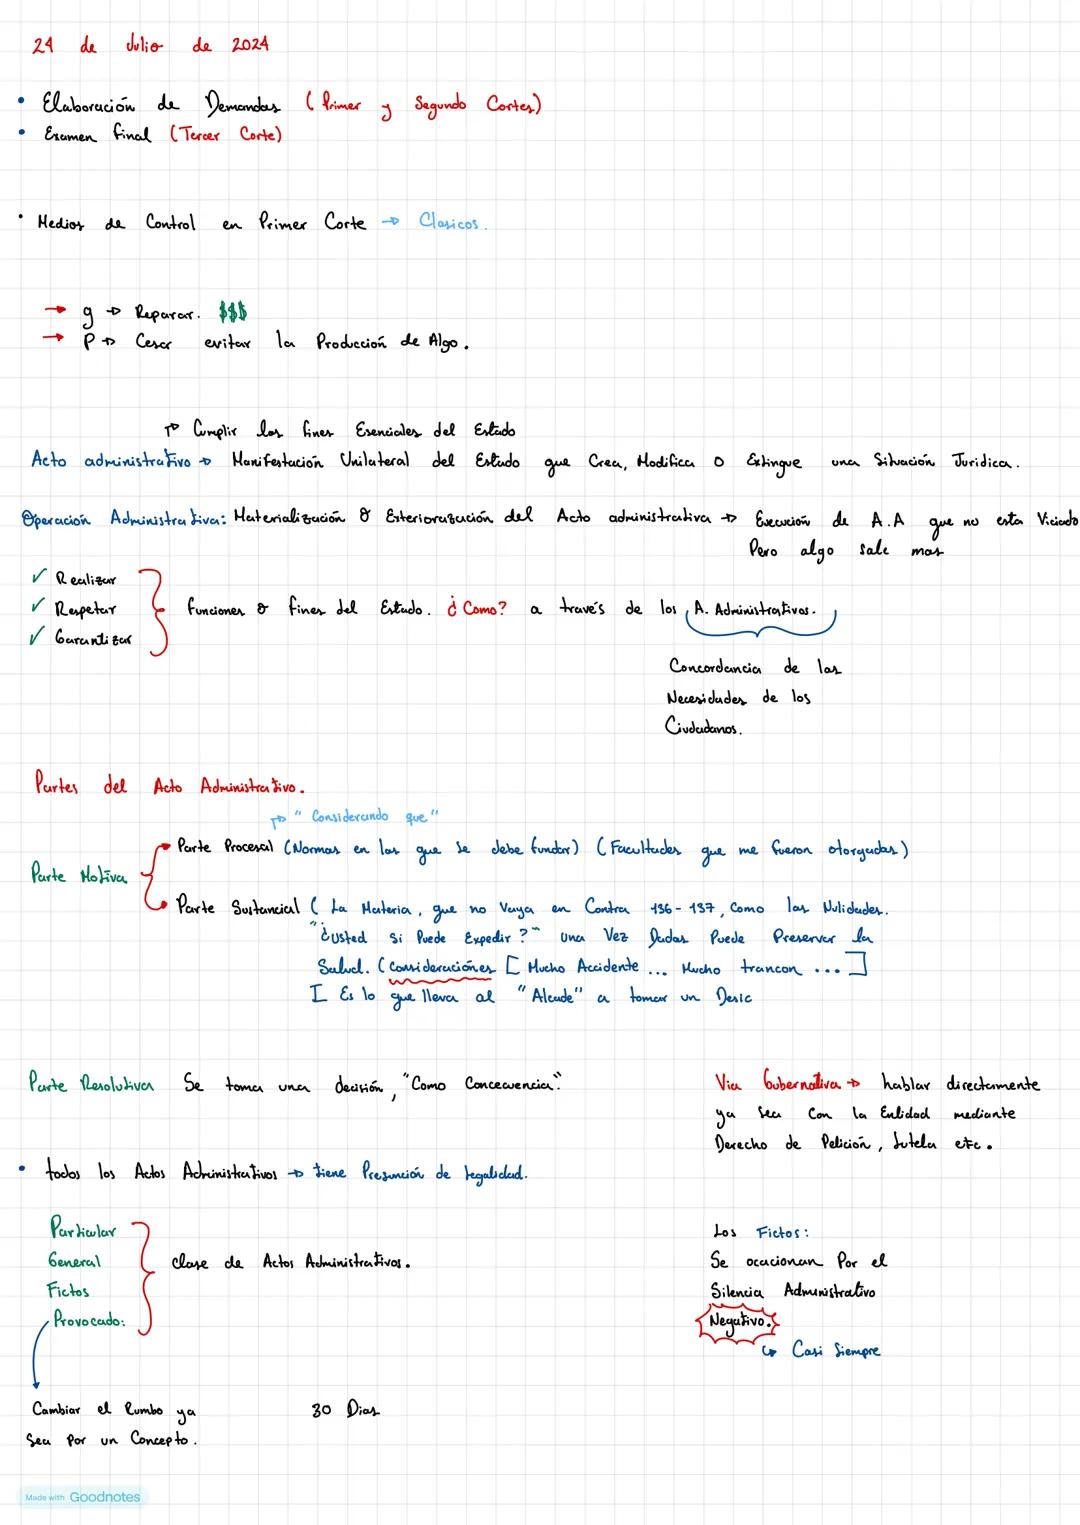 24 de Julio de 2024
• Elaboración de Demandas (Primer y Segundo Cortes)
• Examen final (Tercer Corte)
• Medios de Control en Primer Corte → Clasicos.
→ g → Reparar. $$$
→ P → Cesar evitar la Producción de Algo.
→ Cumplir los fines Esenciales del Estado
Acto administrativo → Manifestación Unilateral del Estado que Crea, Modifica o Extingue una Situación Juridica.
Operación Administrativa: Materialización & Exteriorazación del Acto administrativa → Execución de A.A que no esta Viciado
Pero algo sale mas
✓ Realizar
✓ Respetar
✓ Garantizar
funciones & fines del Estado. ¿Como? a través de los A. Administrativos.
Concordancia de las
Necesidades de los
Ciudadanos.
Partes del Acto Administrativo.
→ "Considerando que"
Parte Motiva
Parte Procesal (Normas en las que se debe fundar) (Facultades que me fueron otorgadas)
Parte Sustancial ( La Materia, que no Vaya en Contra 136-137, Como las Nulidades.
"¿Usted Si Puede Expedir?" una Vez Dadas Puede Preservar la
Salud. (Consideraciónes [ Mucho Accidente ... Mucho trancon ... ]
I Es lo que lleva al "Alcade" a tomar un Desic
Parte Resolutiva Se toma una decisión, "Como Concecuencia".
Via Gubernativa → hablar directamente
ya sea Con la Entidad mediante
Derecho de Petición, tutela etc.
• todos los Actos Administrativos → tiene Presunción de legalidad.
Particular
General
Fictos
Provocado:
Clase de Actos Administrativos.
Los Fictos:
Se ocacionan Por el
Silencia Administrativo
Negativo.
↪ Casi Siempre
Cambiar el Rumbo ya
Sea Por un Concepto.
30 Dias
Made with Goodnotes